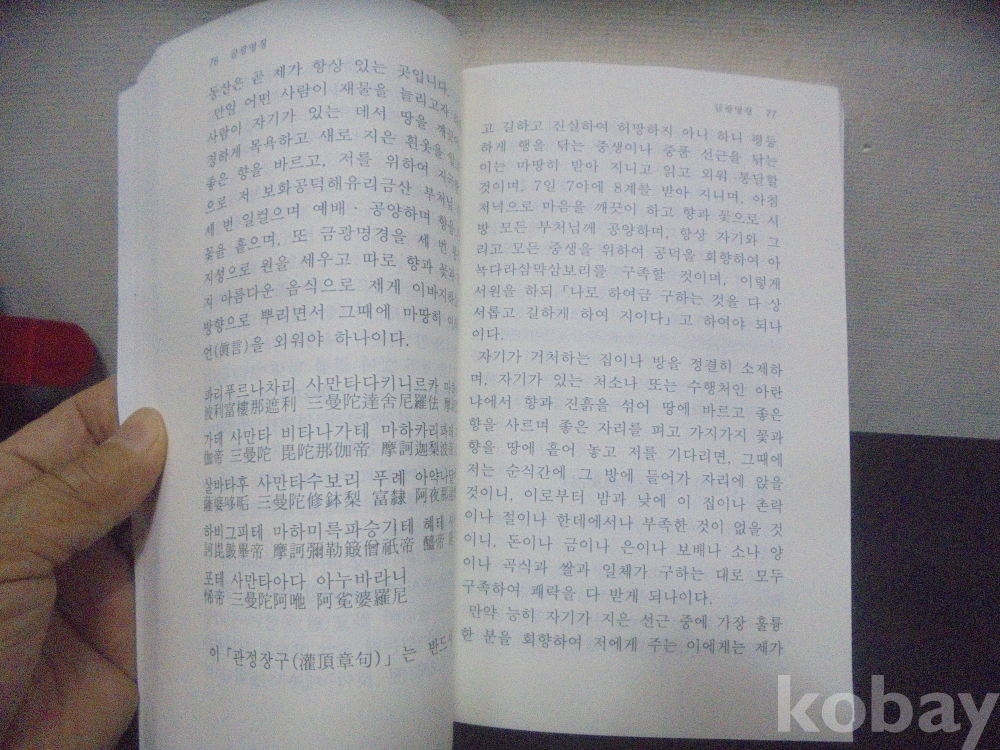 76 금광명경
동산은 곧 제가 항상 있는 곳입니다.
만일 어떤 사람이 재물을 늘리고자
사람이 자기가 있는 데서 땅을
정하게 목욕하고 새로 지은 흰옷을
좋은 향을 바르고, 저를 위하여
으로 저 보화공덕해유리금산 부처님
세 번 일컬으며 예배·공양하며 향을
꽃을 흩으며, 또 금광명경을 세 번
지성으로 원을 세우고 따로 향과 꽃과
지 아름다운 음식으로 제게 이바지하
방향으로 뿌리면서 그때에 마땅히
언(眞言)을 외워야 하나이다.
파리푸르나차리 사만타다키니르카 마하
波利富樓那遮利 三曼陀達舍尼羅佉 摩
가테 사만타 비타나가테 마하카리파
伽帝 三曼陀 毘陀那伽帝 摩訶迦梨波
살바타후 사만타수보리 푸례 아야나
薩婆哆㖃 三曼陀修鉢梨 富隸 阿夜那
하비그피테 마하미륵파승기테 혜테
訶毘鼓畢帝 摩訶彌勒簸僧祇帝 醯帝
포테 사만타아다 아누바라니
悕帝 三曼陀阿咃 阿㝹婆羅尼
이 「관정장구(灌頂章句)」는 반드
금광명경 77
고 길하고 진실하여 허망하지 아니 하니 평등
하게 행을 닦는 중생이나 중품 선근을 닦는
이는 마땅히 받아 지니고 읽고 외워 통달할
것이며, 7일 7야에 8계를 받아 지니며, 아침
저녁으로 마음을 깨끗이 하고 향과 꽃으로 시
방 모든 부처님께 공양하며, 항상 자기와 그
리고 모든 중생을 위하여 공덕을 회향하여 아
뇩다라삼먁삼보리를 구족할 것이며, 이렇게
서원을 하되 「나로 하여금 구하는 것을 다 상
서롭고 길하게 하여 지이다」고 하여야 되나
이다.
자기가 거처하는 집이나 방을 정결히 소제하
며, 자기가 있는 처소나 또는 수행처인 아란
냐에서 향과 진흙을 섞어 땅에 바르고 좋은
향을 사르며 좋은 자리를 펴고 가지가지 꽃과
향을 땅에 흩어 놓고 저를 기다리면, 그때에
저는 순식간에 그 방에 들어가 자리에 앉을
것이니, 이로부터 밤과 낮에 이 집이나 촌락
이나 절이나 한데에서나 부족한 것이 없을 것
이니, 돈이나 금이나 은이나 보배나 소나 양
이나 곡식과 쌀과 일체가 구하는 대로 모두
구족하여 쾌락을 다 받게 되나이다.
만약 능히 자기가 지은 선근 중에 가장 훌륭
한 분을 회향하여 저에게 주는 이에게는 제가
kobay